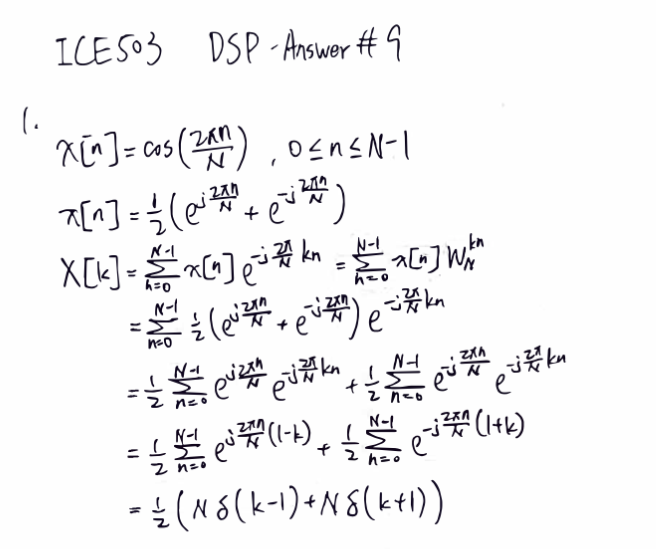 ICE503 DSP-Answer #9
1.
x[n] = cos(2πn/N) , 0≤n≤N-1
x[n] = 1/2 (e^{j2πn/N} + e^{-j2πn/N})
X[k] = Σ_{n=0}^{N-1} x[n] e^{-j(2π/N)kn} = Σ_{n=0}^{N-1} x[n] W_N^{kn}
= Σ_{n=0}^{N-1} 1/2 (e^{j2πn/N} + e^{-j2πn/N}) e^{-j(2π/N)kn}
= 1/2 Σ_{n=0}^{N-1} e^{j2πn/N} e^{-j(2π/N)kn} + 1/2 Σ_{n=0}^{N-1} e^{-j2πn/N} e^{-j(2π/N)kn}
= 1/2 Σ_{n=0}^{N-1} e^{j(2πn/N)(1-k)} + 1/2 Σ_{n=0}^{N-1} e^{-j(2πn/N)(1+k)}
= 1/2 (Nδ(k-1) + Nδ(k+1))